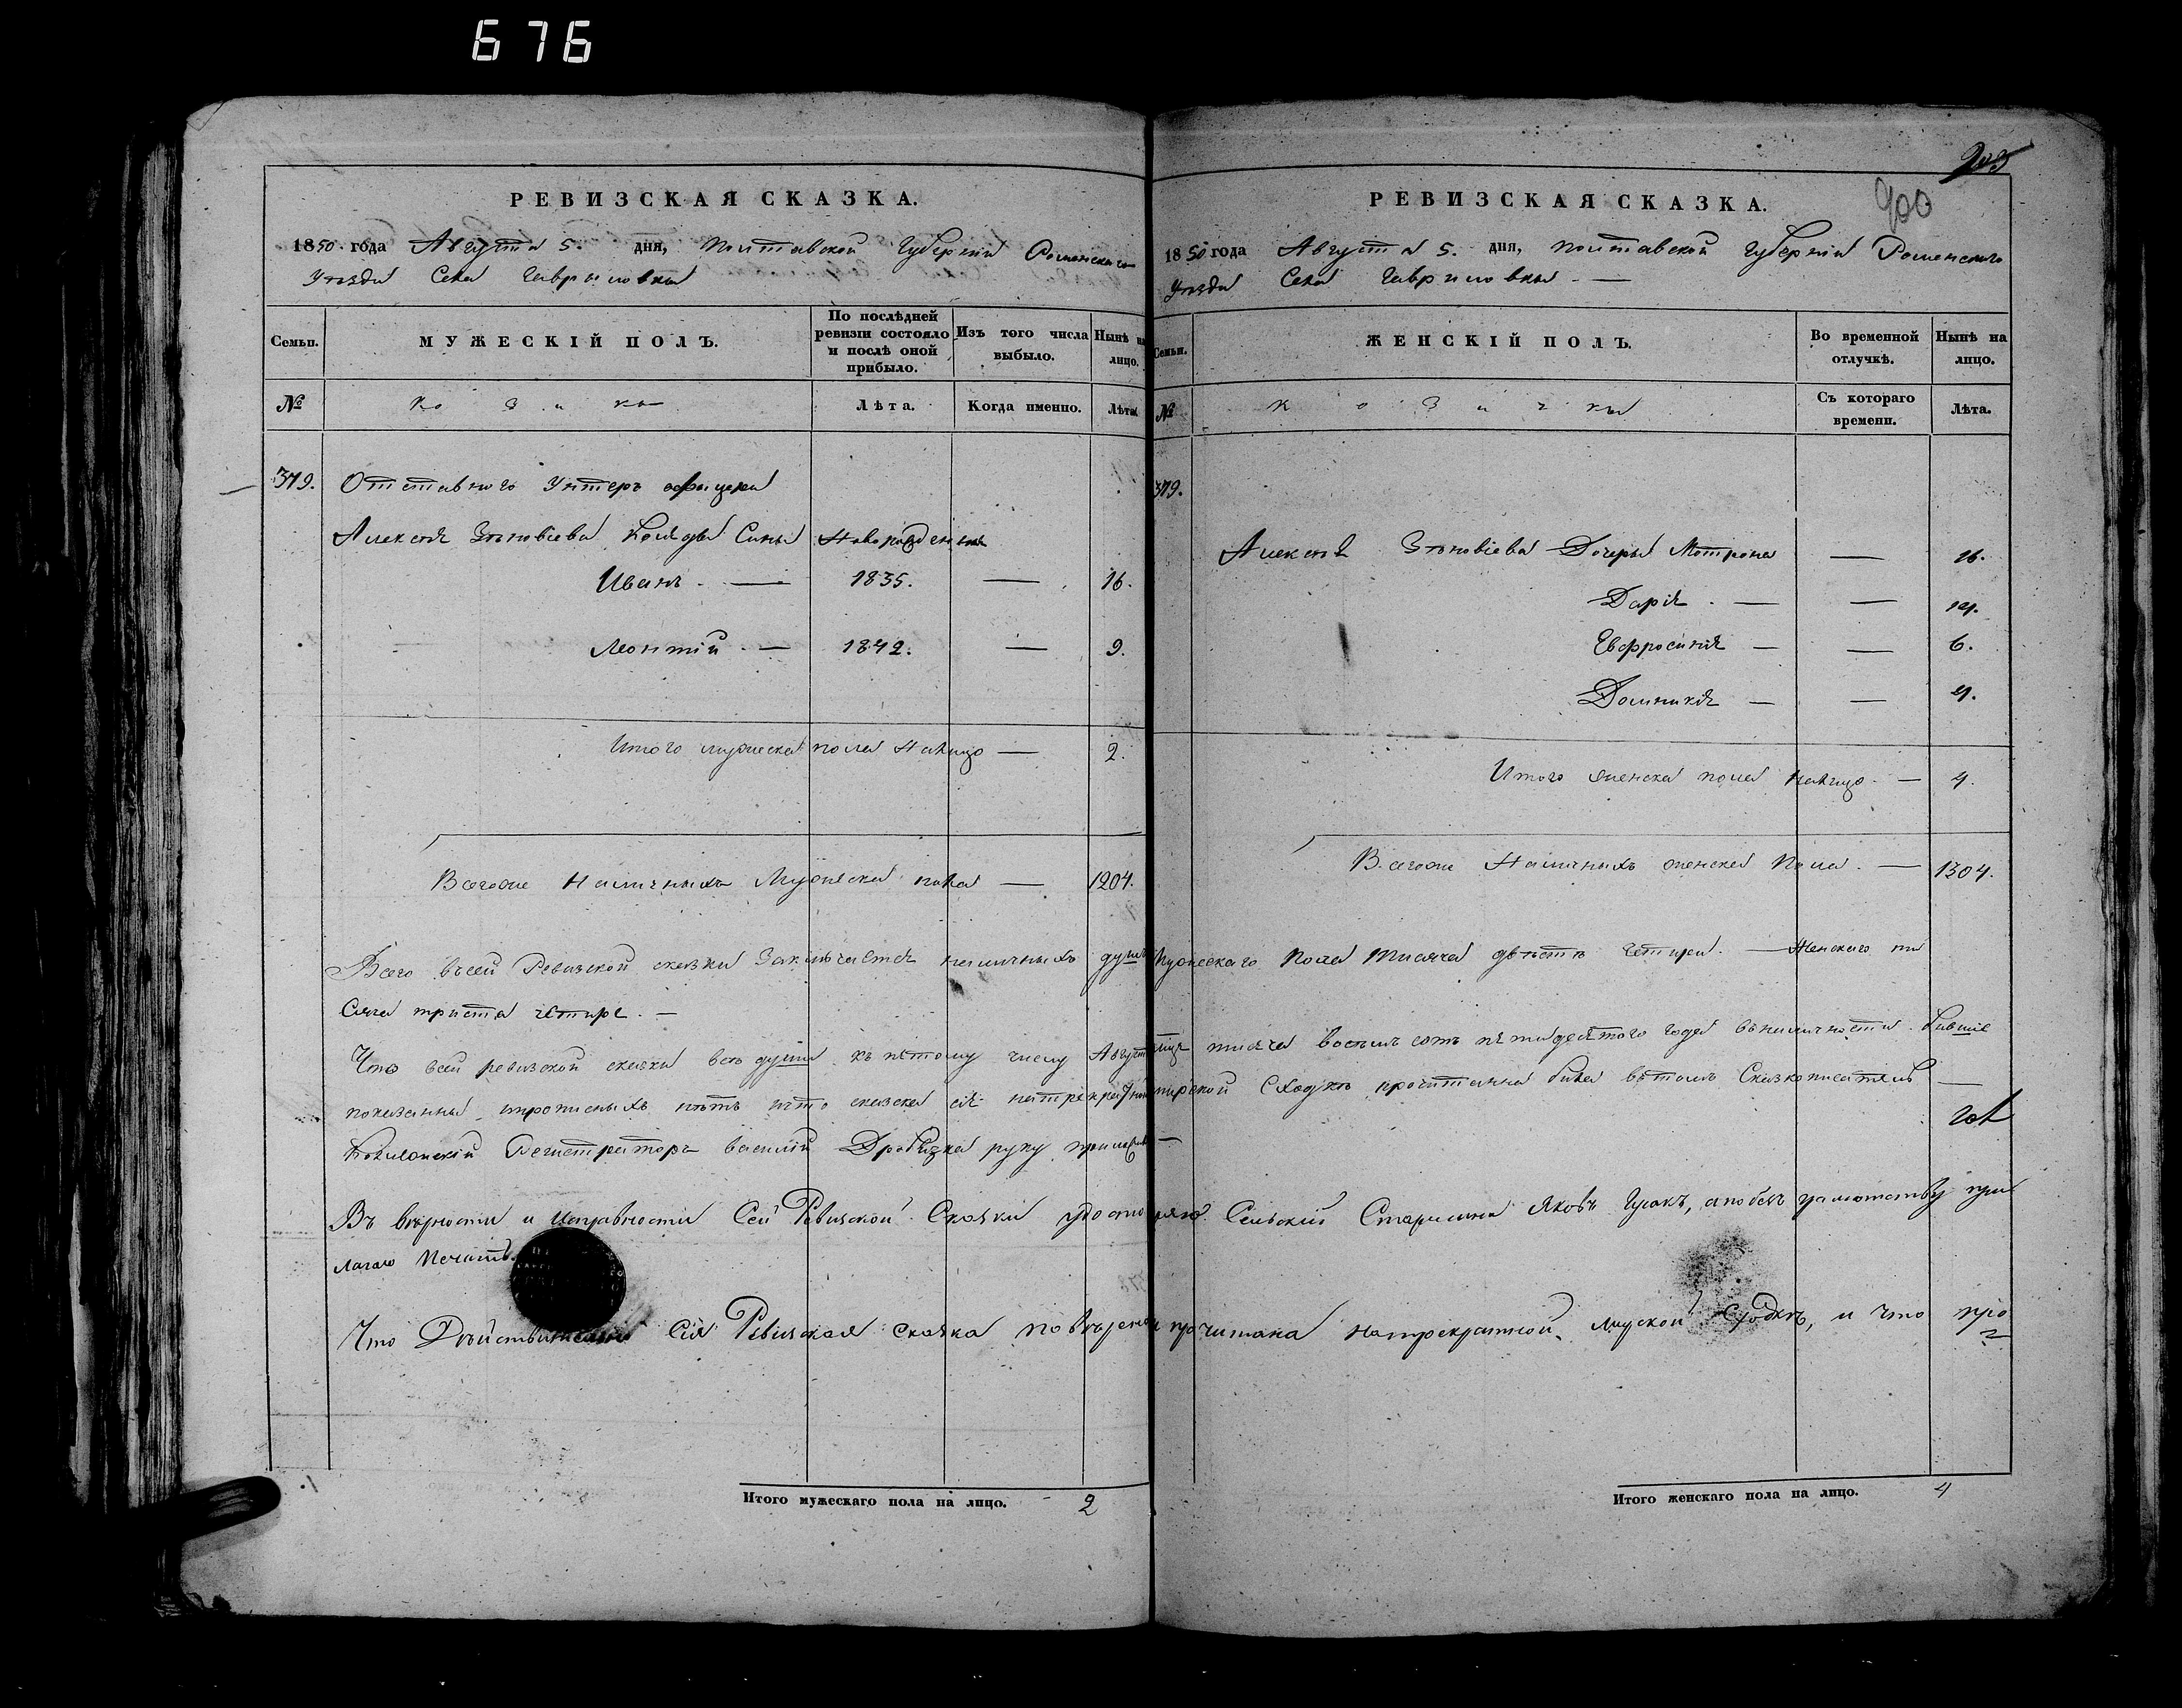 676
203
900
РЕВИЗСКАЯ СКАЗКА.
1850 года Августа 5. дня, Полтавской Губерніи Роменскаго
Уѣзда Села Гавриловки
Семьи. МУЖЕСКІЙ ПОЛЪ. По послѣдней ревизіи состояло и послѣ оной прибыло. Изъ того числа выбыло. Нынѣ на лицо.
№ Козаки Лѣта. Когда именно. Лѣта.
379. Отставнаго Унтеръ офицера
Алексѣя Зѣновіева Сины Новорожденные
Иванъ — 1835. — 16.
Леонтій — 1842. — 9.
Итого мужеска пола налицо — 2.
Всегоже Наличныхъ Мужеска пола — 1204.
РЕВИЗСКАЯ СКАЗКА.
1850 года Августа 5. дня, Полтавской Губерніи Роменскаго
Уѣзда Села Гавриловки —
Семьи. ЖЕНСКІЙ ПОЛЪ. Во временной отлучкѣ. Нынѣ на лицо.
№ Козачки Съ котораго времени. Лѣта.
379.
Алексѣя Зѣновіева Дочеры Мотрона — 16.
Дарія — —
Евфросинія — — 6.
Домникія — — 4.
Итого женска пола налицо — 4.
Всегоже Наличныхъ женска Пола — 1304.
Всего въсей Ревизской сказки Заключается наличныхъ душъ Мужескаго Пола Тисяча двѣстѣ четири. — Женскаго ти
сяча триста четире. —
Что всей ревизской сказки всѣ души къ пятому числу Августа тисяча восемь сотъ пятидесятого года въналичности бившіе
показанны, ипрописныхъ нѣтъ ичто сказка сія натрекратной мирской Сходкѣ прочитанна била вътомъ Сказкописатель —
Регистраторъ василій руку приложилъ —
Въ вѣрности и Исправности Сей Ревизской Сказки удостовѣряю. Сельскій Старшина Яковъ Гусакъ, анобезъ грамотству при
лагаю Печать.
Что Дѣйствительно Сія Ревизская Сказка повѣрена и прочитана натрекратной мирской сходкѣ, и что про
Итого мужескаго пола на лицо. 2
Итого женскаго пола на лицо. 4